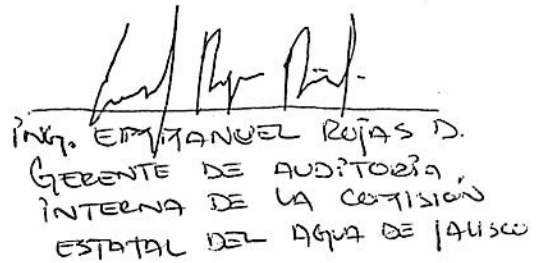 ing. EMMANUEL ROJAS D.
GERENTE DE AUDITORIA
INTERNA DE LA COMISION
ESTATAL DEL AGUA DE JALISCO